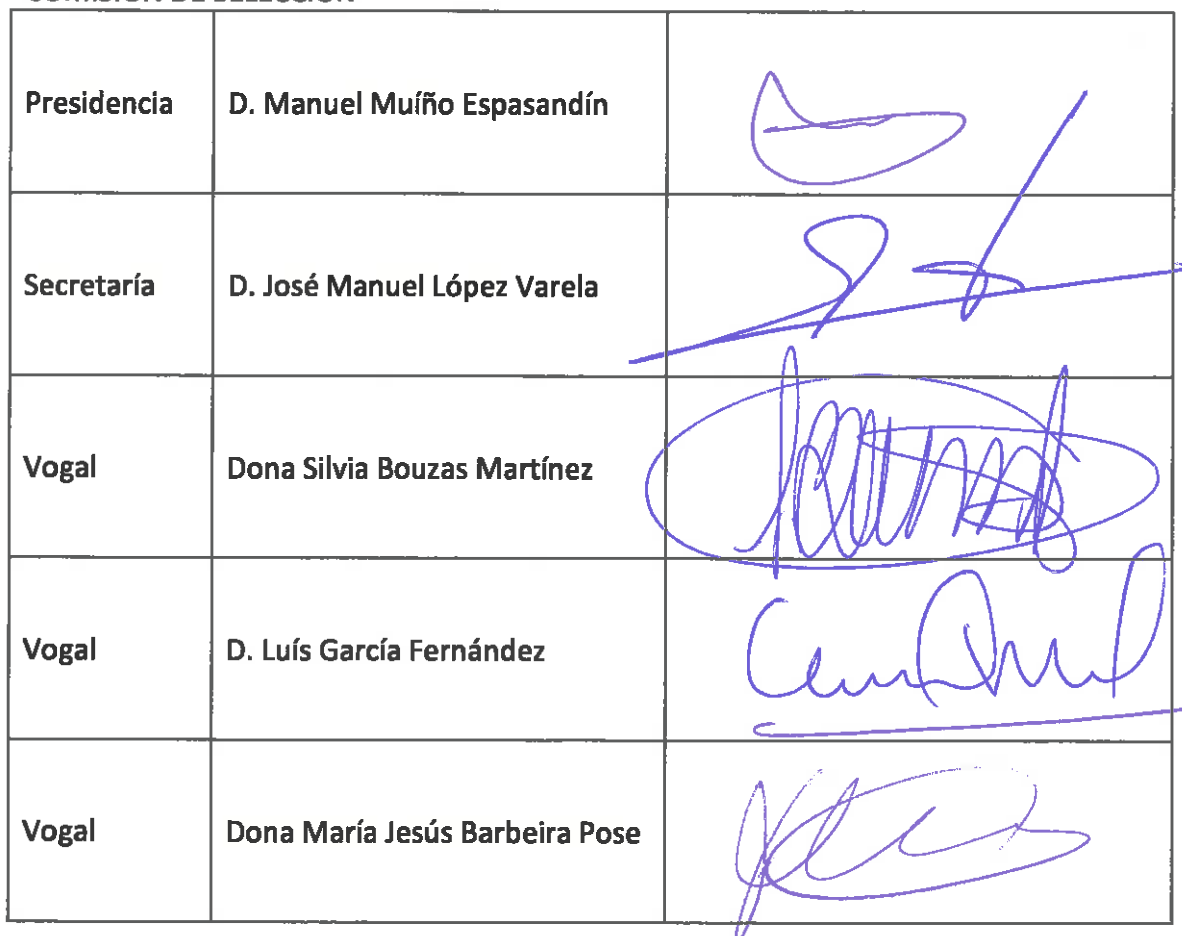 Presidencia D. Manuel Muíño Espasandín
Secretaría D. José Manuel López Varela
Vogal Dona Silvia Bouzas Martínez
Vogal D. Luís García Fernández
Vogal Dona María Jesús Barbeira Pose